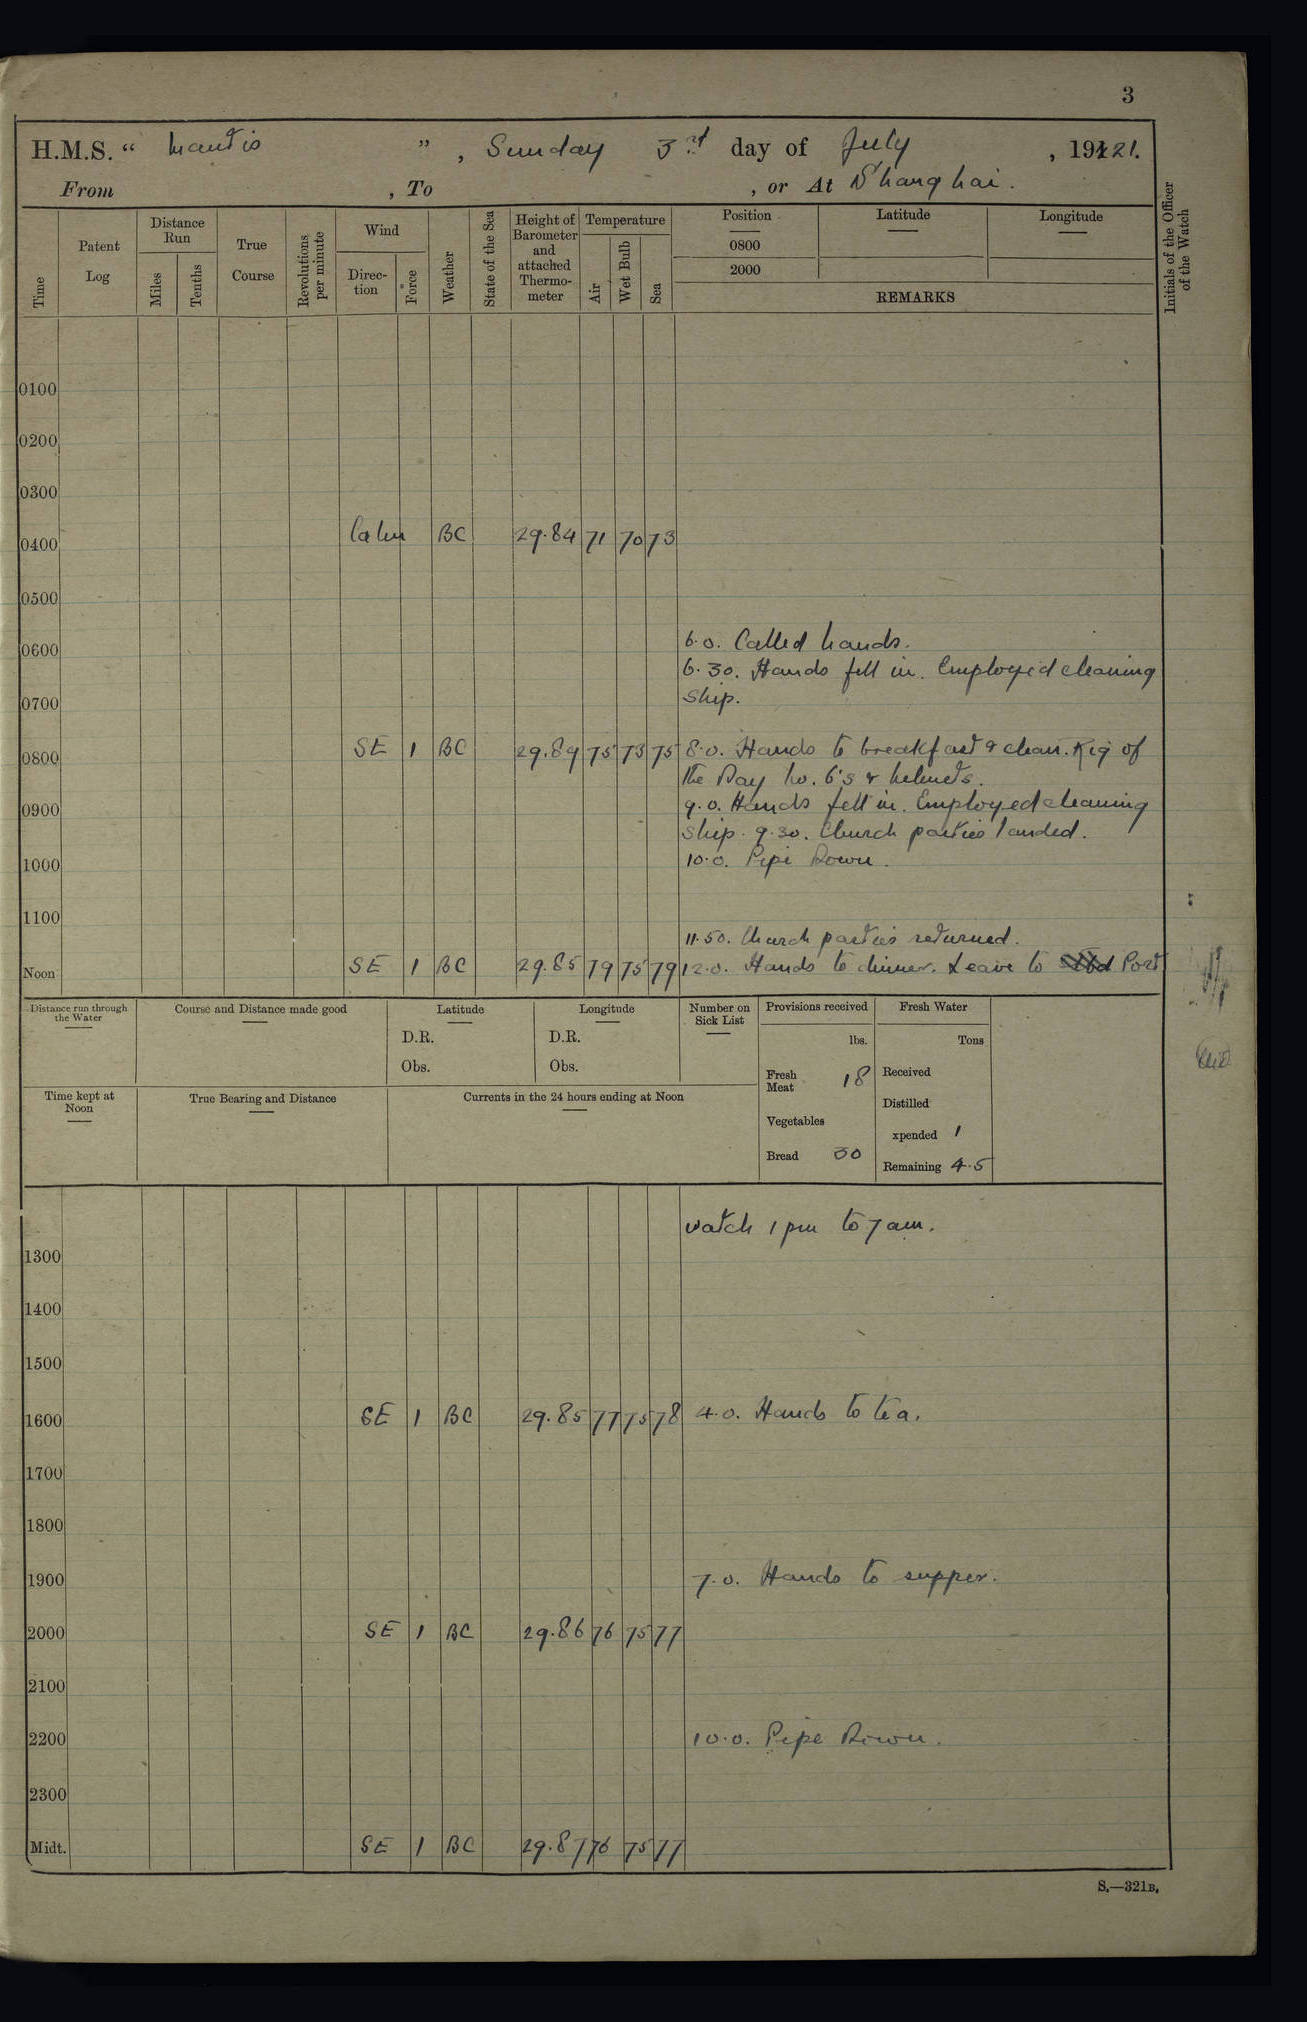 3
H.M.S. “ Mantis ” , Sunday 3rd day of July , 1921.
From , To , or At Shanghai.
Time
Patent Log
Distance Run
Miles
Tenths
True Course
Revolutions per minute
Wind
Direc-tion
Force
Weather
State of the Sea
Height of Barometer and attached Thermo-meter
Temperature
Air
Wet Bulb
Sea
Position
0800
2000
Latitude
Longitude
REMARKS
Initials of the Officer of the Watch
0100
0200
0300
0400 Calm BC 29.84 71 70 73
0500
6.0. Called hands.
0600
6.30. Hands fell in. Employed cleaning
ship.
0700
0800 SE 1 BC 29.89 75 73 75 8.0. Hands to breakfast & clean. Rig of
the Day No. 6's & helmets.
9.0. Hands fell in. Employed cleaning
0900
ship. 9.30. Church parties landed.
10.0. Pipe Down.
1000
1100
11.50. Church parties returned.
Noon SE 1 BC 29.85 79 75 79 12.0. Hands to dinner. Leave to Port
Distance run through the Water
Course and Distance made good
Latitude
D.R.
Obs.
Longitude
D.R.
Obs.
Number on Sick List
Provisions received
lbs.
Fresh Meat 18
Vegetables
Bread 30
Fresh Water
Tons
Received
Distilled
xpended 1
Remaining 4.5
Time kept at Noon
True Bearing and Distance
Currents in the 24 hours ending at Noon
watch 1 pm to 7 am.
1300
1400
1500
1600 SE 1 BC 29.85 77 75 78 4.0. Hands to tea.
1700
1800
1900 7.0. Hands to supper.
2000 SE 1 BC 29.86 76 75 77
2100
2200 10.0. Pipe Down.
2300
Midt. SE 1 BC 29.87 76 75 77
S.—321B.